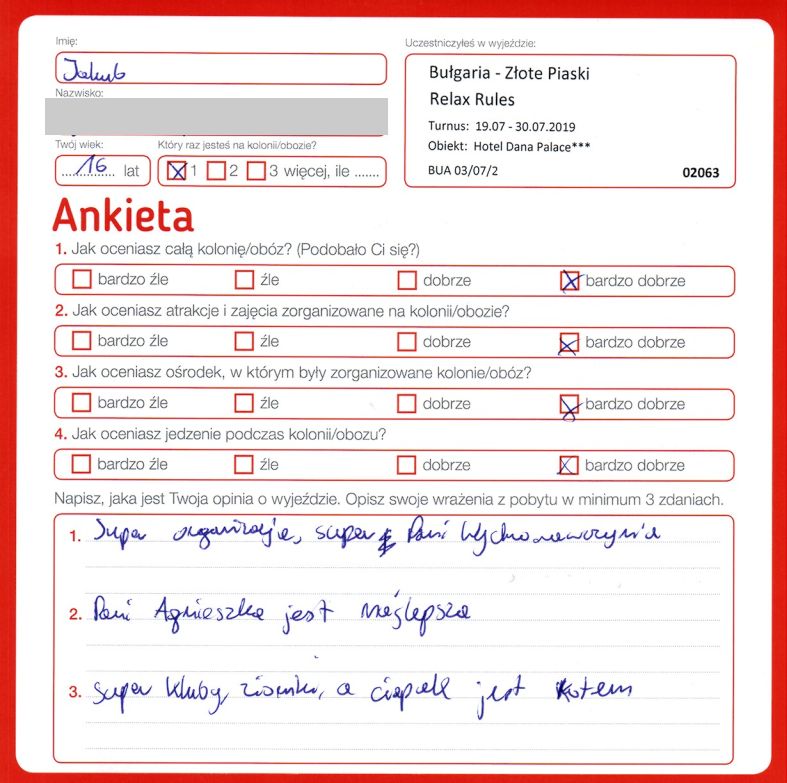 Imię:
Jakub
Nazwisko:
Twój wiek:
16 lat
Który raz jesteś na kolonii/obozie?
1 2 3 więcej, ile .......
Uczestniczyłeś w wyjeździe:
Bułgaria - Złote Piaski
Relax Rules
Turnus: 19.07 - 30.07.2019
Obiekt: Hotel Dana Palace***
BUA 03/07/2 02063
Ankieta
1. Jak oceniasz całą kolonię/obóz? (Podobało Ci się?)
bardzo źle źle dobrze bardzo dobrze
2. Jak oceniasz atrakcje i zajęcia zorganizowane na kolonii/obozie?
bardzo źle źle dobrze bardzo dobrze
3. Jak oceniasz ośrodek, w którym były zorganizowane kolonie/obóz?
bardzo źle źle dobrze bardzo dobrze
4. Jak oceniasz jedzenie podczas kolonii/obozu?
bardzo źle źle dobrze bardzo dobrze
Napisz, jaka jest Twoja opinia o wyjeździe. Opisz swoje wrażenia z pobytu w minimum 3 zdaniach.
1. Super organizacja, super Pani Wychowawczynia
2. Pani Agnieszka jest najlepsza
3. super kluby, ziomki, a jest kotem